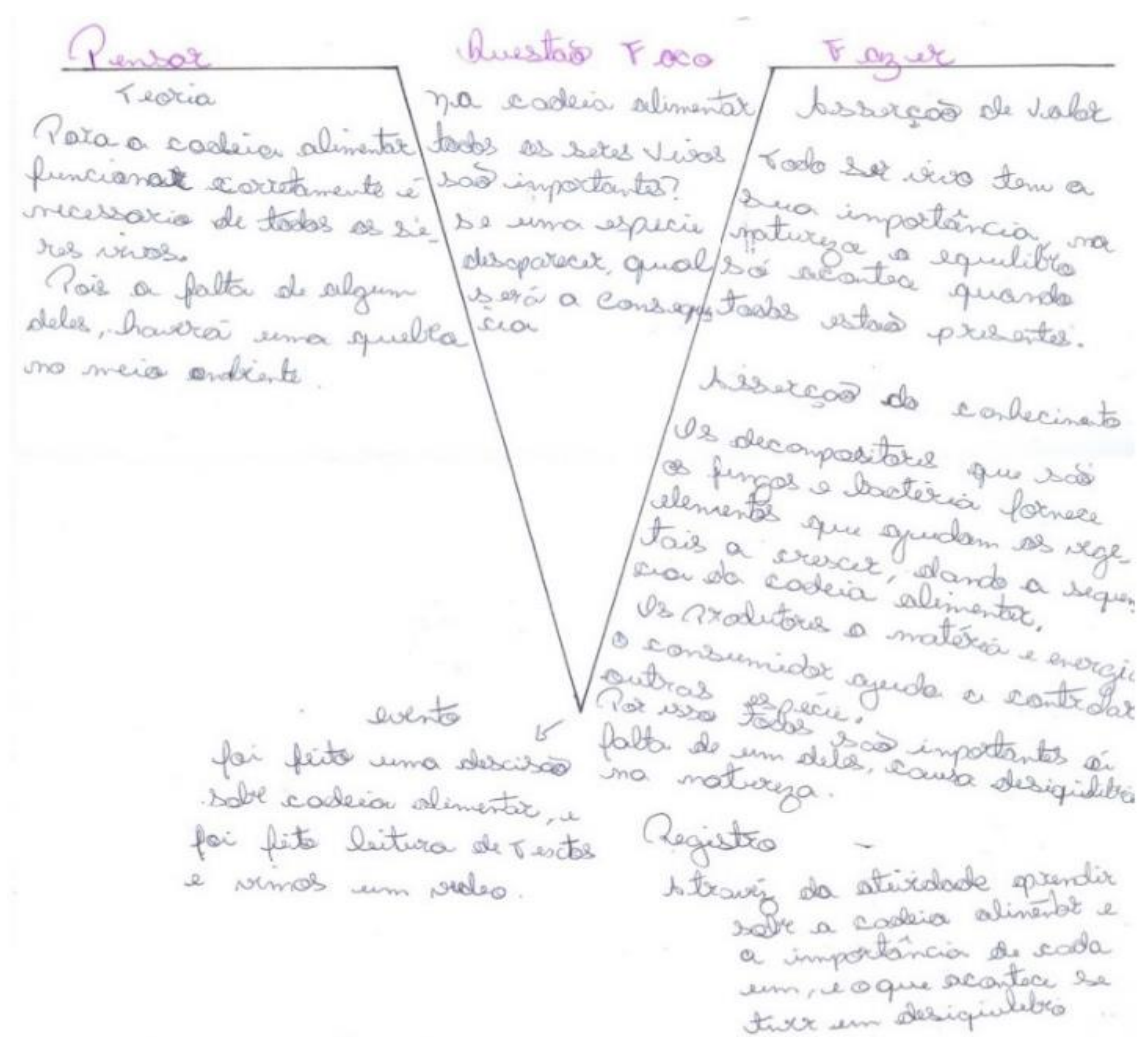 Pensar
Teoria
Para a cadeia alimentar
funcionar corretamente é
necessario de todos os sé-
res vivos.
Pois a falta de algum
deles, haverá uma quebra
no meio ambiente.
Questão Foco
na cadeia alimentar
todos os seres vivos
são inportantes?
se uma espécie
disaparecer, qual
será a
cia
Fazer
Asserção de Valor
Todo ser vivo tem a
sua importância, na
natureza o equilibro
só acontece quando
todos estaõ presentes.
Asserção do conhecimento
Os decompositores que são
os fungos e bactéria fornece
elementos que ajudam os vege-
tais a crescer, dando a sequen
cia da cadeia alimentar.
Os Produtores a matéria e energia
o consumidor ajuda a controlar
outras espécie.
Por isso todos são inportantes
falta de um deles, causa desiquilibrio
na natureza.
evento
foi feito uma discisão
sobre cadeia alimentar, e
foi feito leitura de Textos
e vimos um video.
Registro
Atravéz da atividade aprendir
sobre a cadeia alimentar e
a importância de cada
um, e o que acontece se
um desiquilebrio